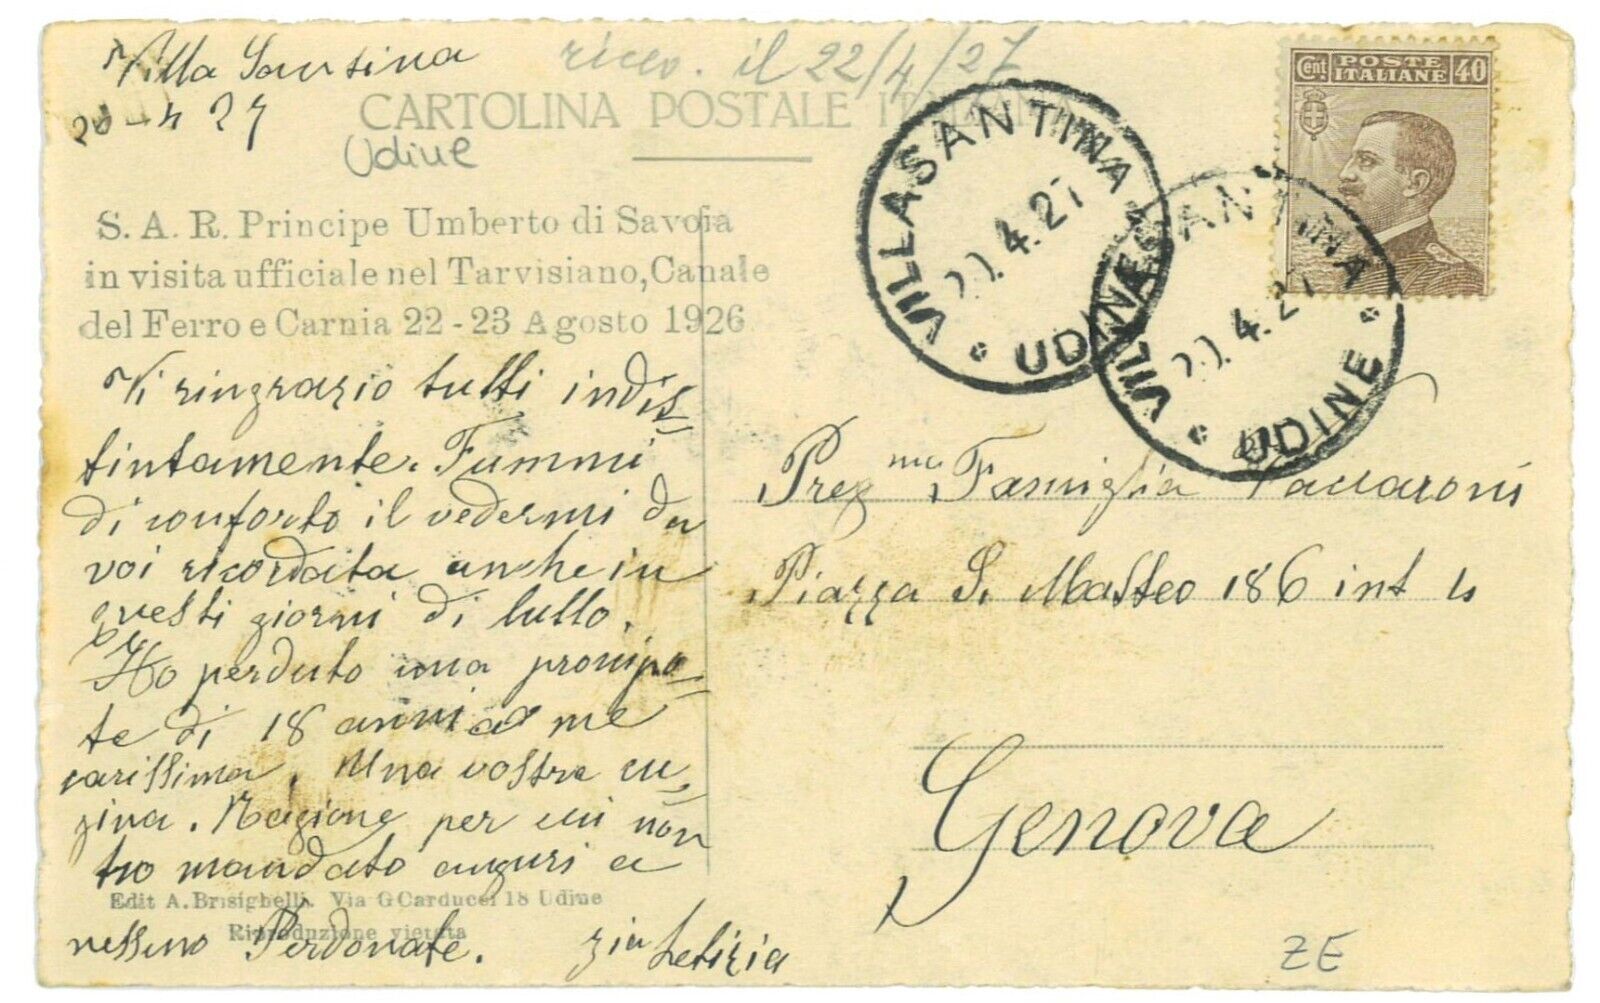 Villa Santina
20-4 27
ricev. il 22/4/27
CARTOLINA POSTALE ITALIANA
Udine
S. A. R. Principe Umberto di Savoia
in visita ufficiale nel Tarvisiano, Canale
del Ferro e Carnia 22-23 Agosto 1926
Vi ringrazio tutti indis=
tintamente. Fummi
di conforto il vedermi da
voi ricordata anche in
questi giorni di lutto.
Ho perduto una pronipo=
te di 18 anni a me
carissima. Una vostra cu=
gina. Ragione per cui non
ho mandato auguri a
Edit A. Brisighelli. Via G Carducci 18 Udine
Riproduzione vietata
nessuno Perdonate.
zia Letizia
Cent POSTE ITALIANE 40
VILLASANTINA
20.4.27
UDINE
VILLASANTINA
20.4.27
UDINE
Prez ma Famiglia Vaccaroni
Piazza S. Matteo 186 int 4
Genova
ZE